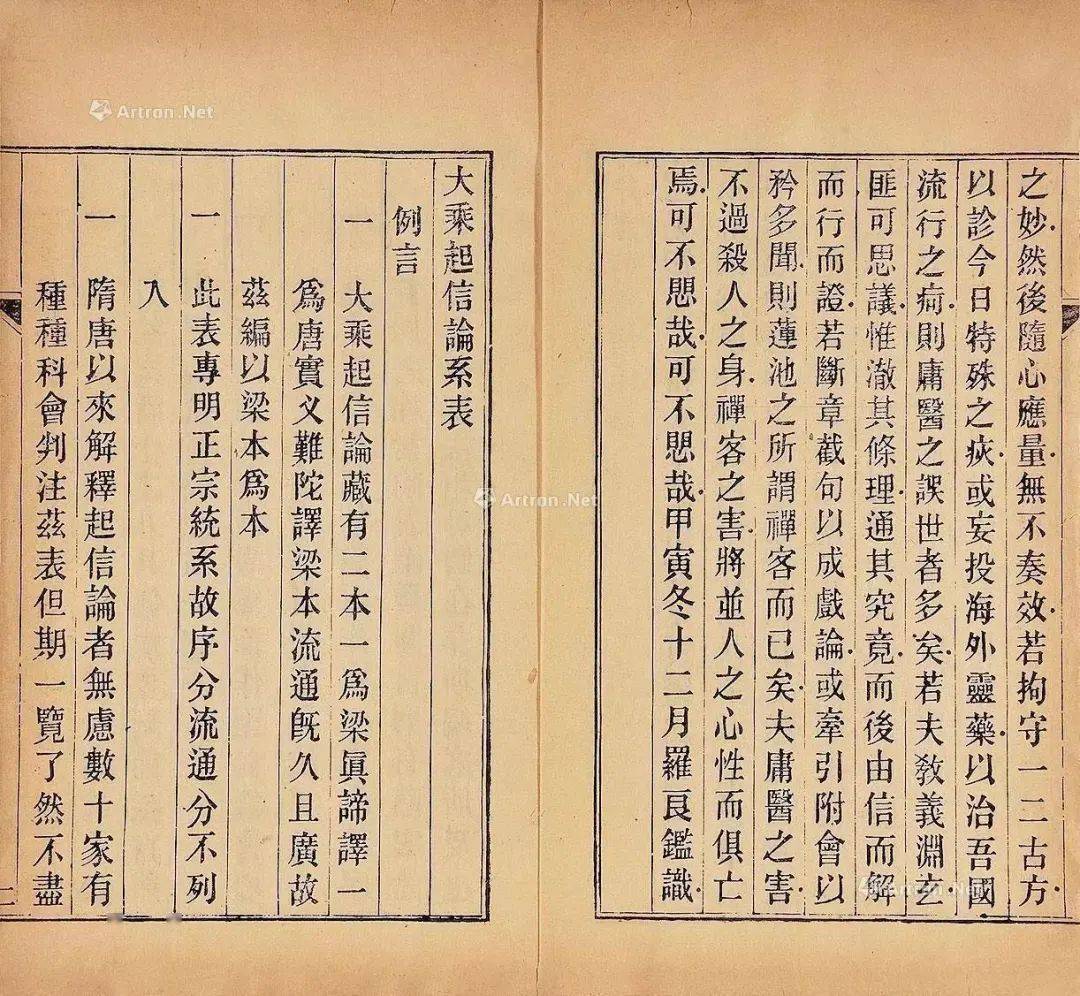 之妙然後隨心應量無不奏效若拘守一二古方
以診今日特殊之疢或妄投海外靈藥以治吾國
流行之疴則庸醫之誤世者多矣若夫敎義淵玄
匪可思議惟澈其條理通其究竟而後由信而解
而行而證若斷章截句以成戲論或牽引附會以
矜多聞則蓮池之所謂禪客而已矣夫庸醫之害
不過殺人之身禪客之害將並人之心性而俱亡
焉可不愳哉可不愳哉甲寅冬十二月羅良鑑識
大乘起信論系表
例言
一 大乘起信論藏有二本一爲梁眞諦譯一
爲唐實叉難陀譯梁本流通旣久且廣故
茲編以梁本爲本
一 此表專明正宗統系故序分流通分不列
入
一 隋唐以來解釋起信論者無慮數十家有
種種科會判注茲表但期一覽了然不盡
Artron.Net
Artron.Net
Artron.Net